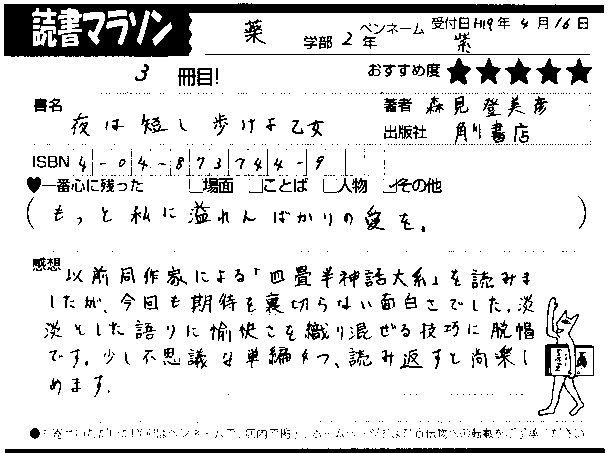 読書マラソン
薬 学部 2 年 ペンネーム 紫 受付日 H19 年 4 月 16 日
3 冊目! おすすめ度 ★★★★★
書名 夜は短し歩けよ乙女 著者 森見登美彦
出版社 角川書店
ISBN 4-04-873744-9
♥一番心に残った □場面 □ことば □人物 ☑その他
(もっと私に溢れんばかりの愛を。)
感想 以前同作家による「四畳半神話大系」を読みま
したが、今回も期待を裏切らない面白さでした。淡
淡とした語りに愉快さを織り混ぜる技巧に脱帽
です。少し不思議な単編4つ、読み返すと尚楽し
めます。